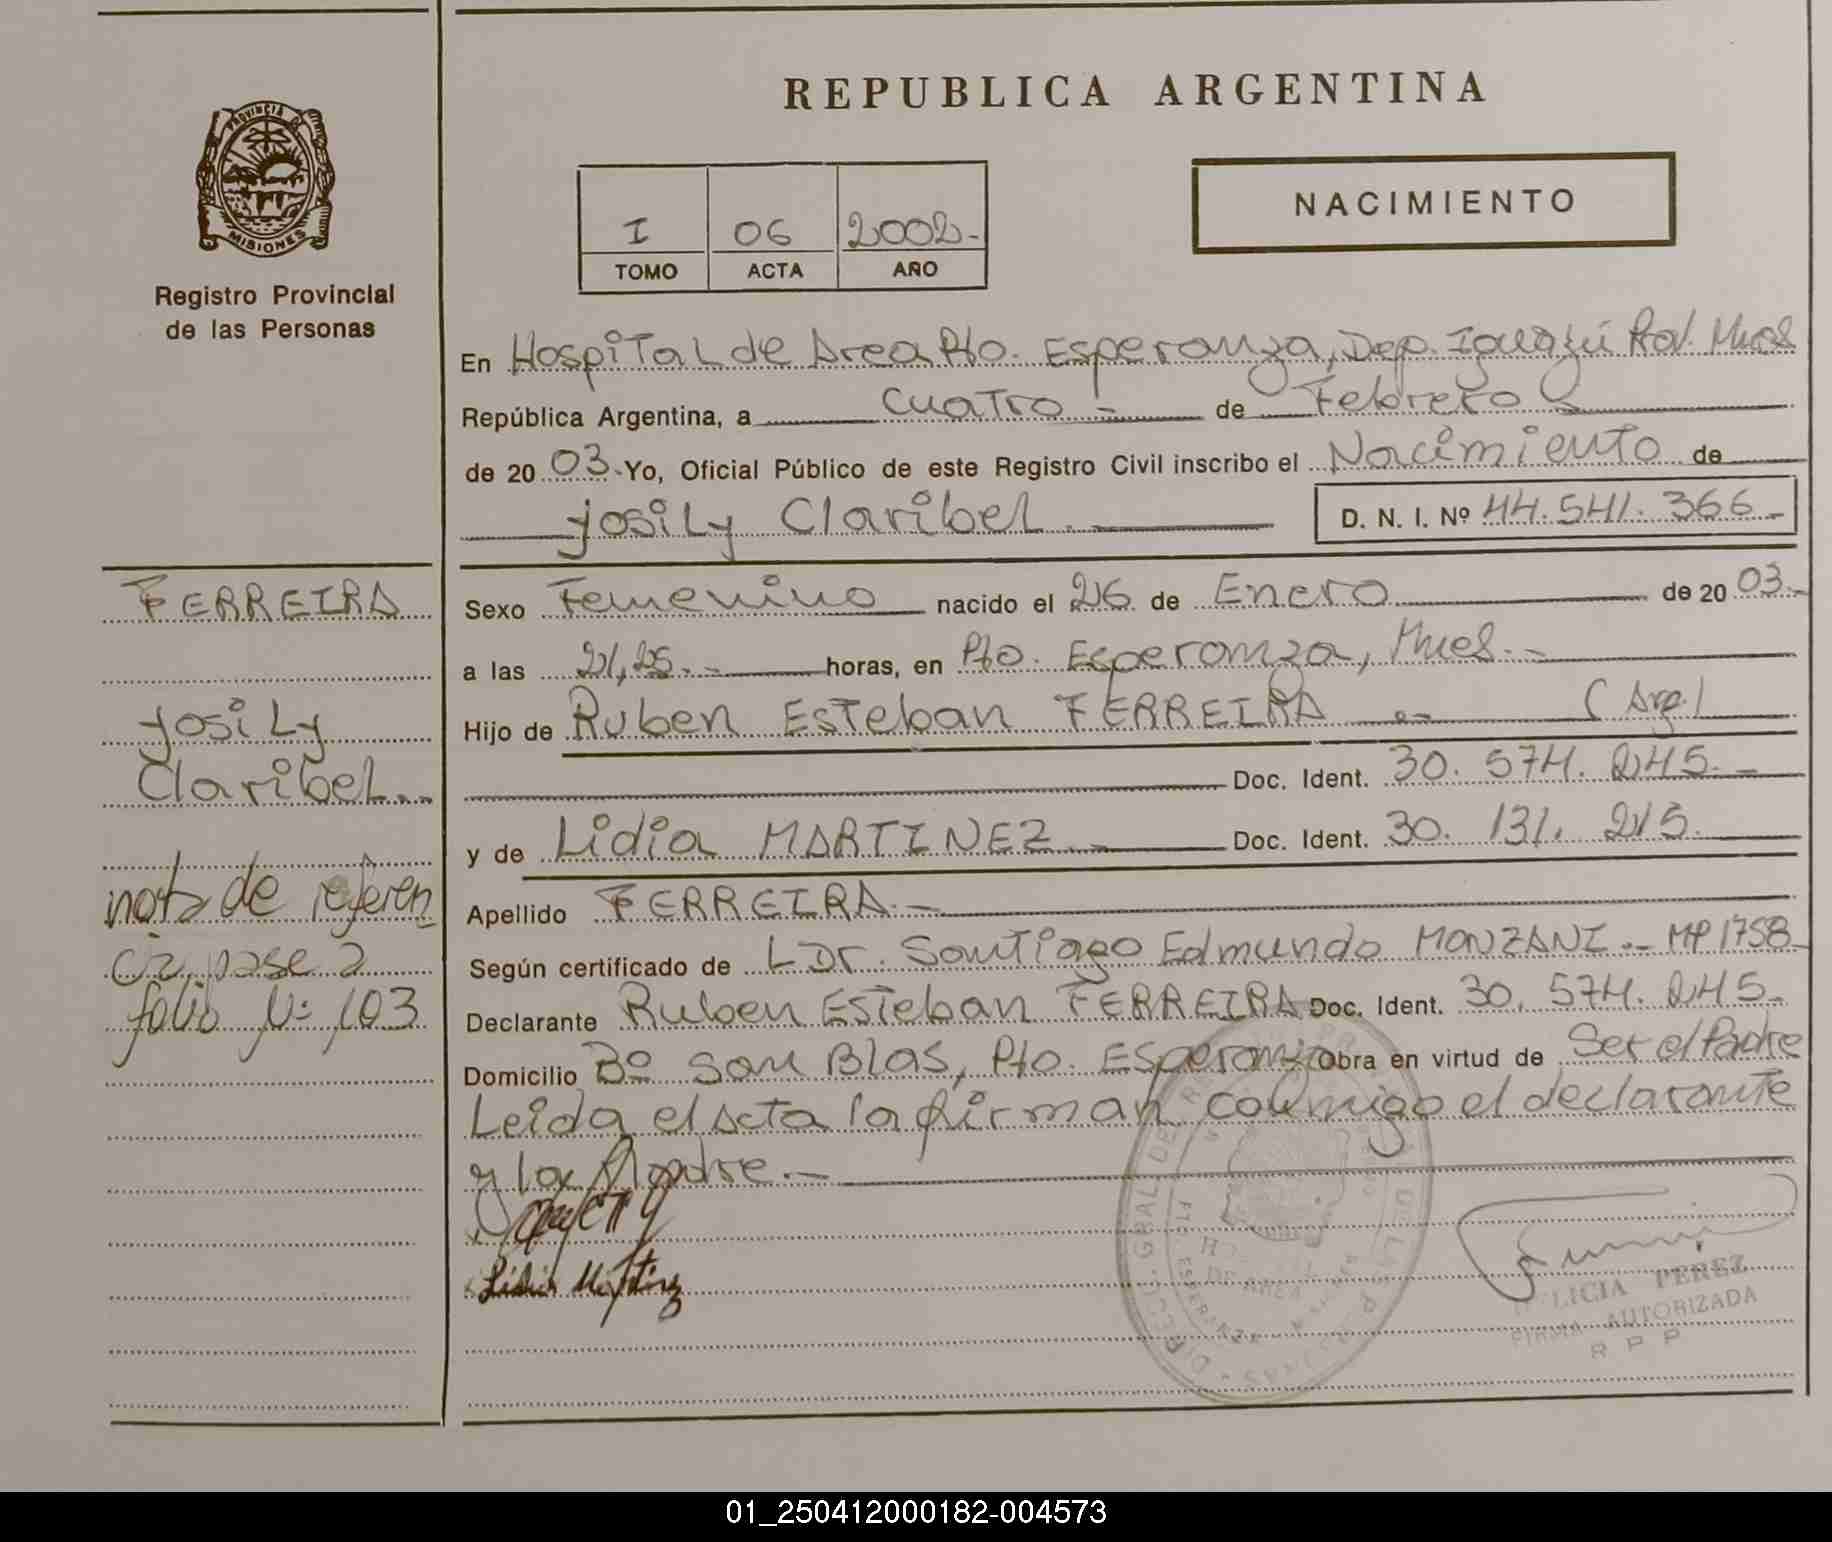 REPUBLICA ARGENTINA
PROVINCIA DE
MISIONES
Registro Provincial
de las Personas
I 06 2002.-
TOMO ACTA AÑO
NACIMIENTO
En Hospital de Area Pto. Esperanza, Dep. Iguazú Prov. Mnes
República Argentina, a cuatro.- de Febrero
de 20 03.- Yo, Oficial Público de este Registro Civil inscribo el Nacimiento de
Yosily Claribel.- D. N. I. Nº 44.541.366.-
Sexo Femenino nacido el 26 de Enero de 20 03.-
a las 21,25.- horas, en Pto. Esperanza, Mnes.-
Hijo de Ruben Esteban FERREIRA.- (Arg)
Doc. Ident. 30.574.245.-
y de Lidia MARTINEZ.- Doc. Ident. 30.131.215.
Apellido FERREIRA.-
Según certificado de L Dr. Santiago Edmundo MONZANI.- MP 1758
Declarante Ruben Esteban FERREIRA Doc. Ident. 30.574.245.
Domicilio Bº San Blas, Pto. Esperanza Obra en virtud de Ser el Padre
Leida el Acta la firman conmigo el declarante
y la Madre.-
Lidia Martinez
FERREIRA
Yosily
Claribel.-
nota de referen
cia pase a
folio Nº 103
PEREZ
FIRMA AUTORIZADA
R P P
01_250412000182-004573